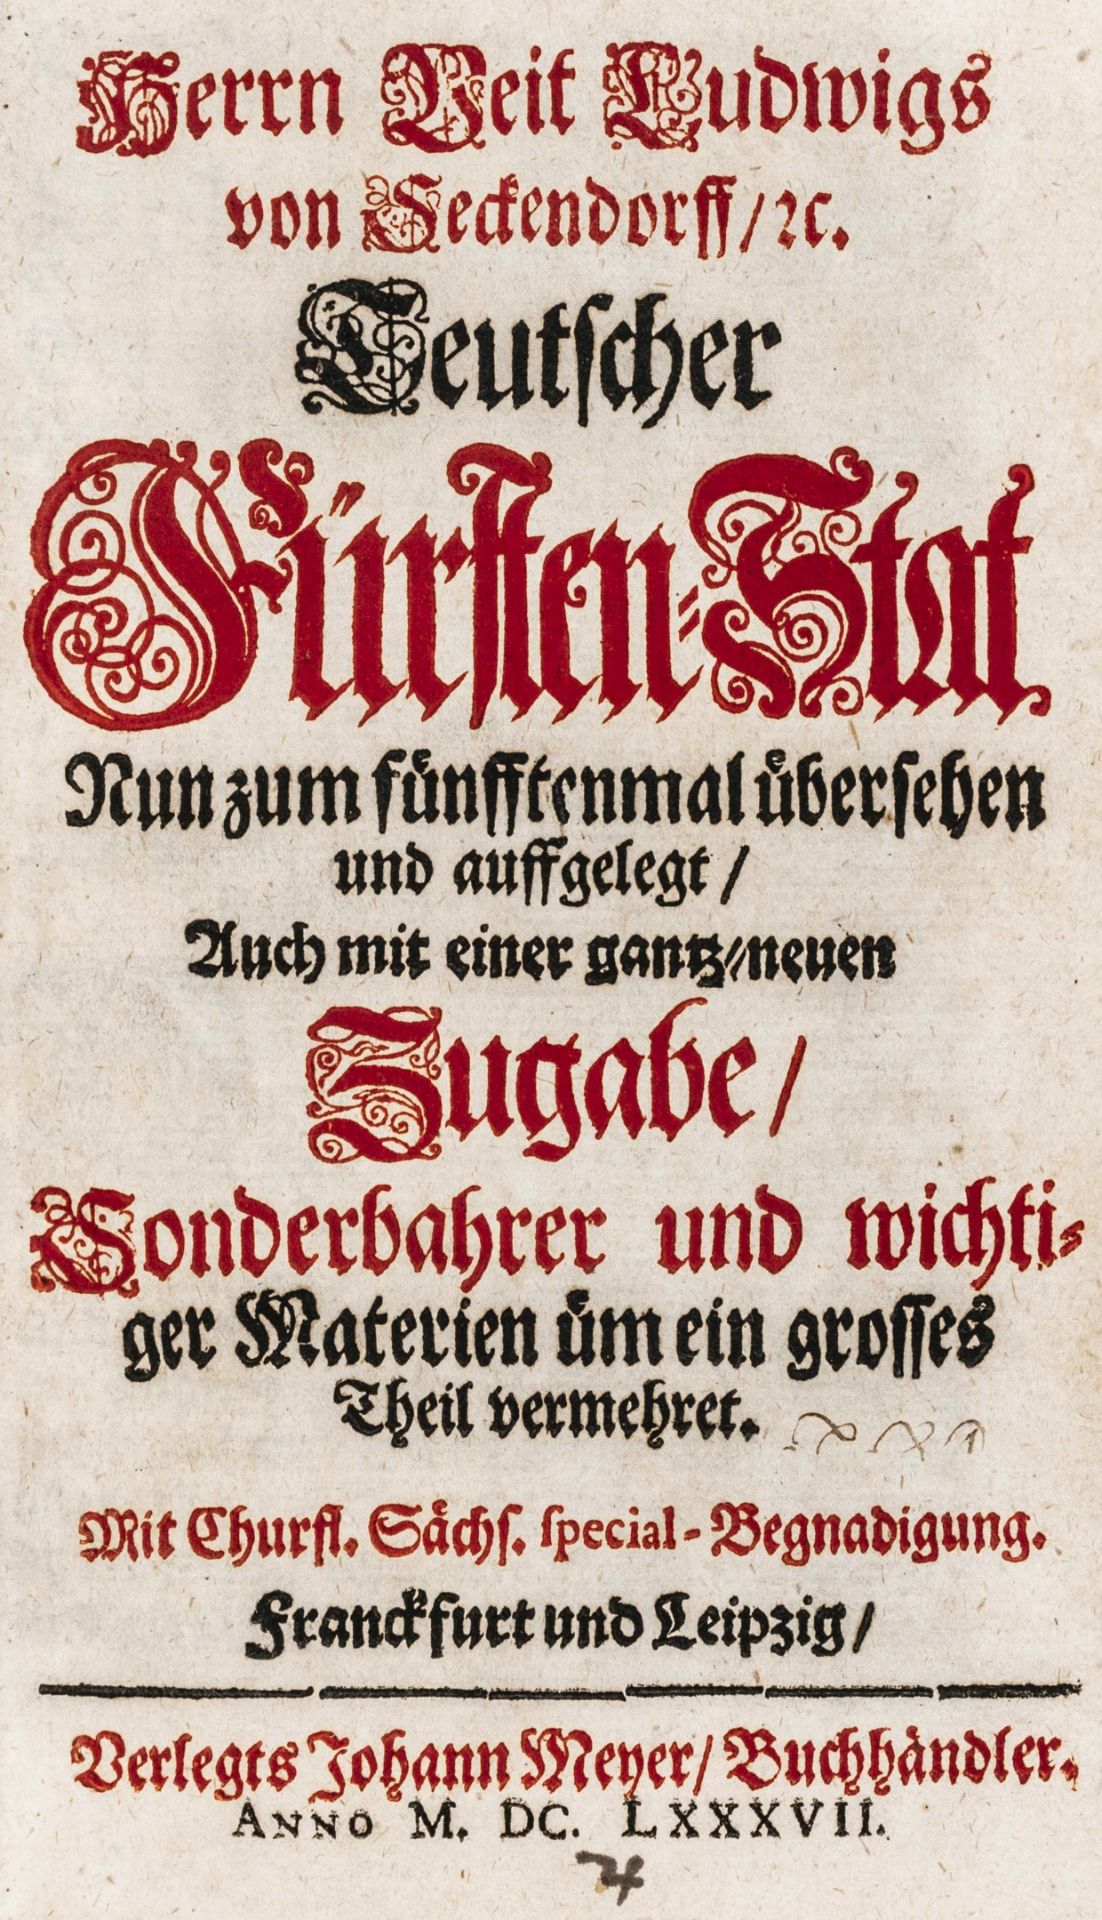 Herrn Veit Ludwigs
von Seckendorff/ ꝛc.
Teutscher
Fürsten-Stat
Nun zum fuͤnfftenmal uͤbersehen
und auffgelegt/
Auch mit einer gantz-neuen
Zugabe/
Sonderbahrer und wichti-
ger Materien uͤm ein grosses
Theil vermehret.
Mit Churfl. Saͤchs. special-Begnadigung.
Franckfurt und Leipzig/
Verlegts Johann Meyer/ Buchhaͤndler.
ANNO M. DC. LXXXVII.